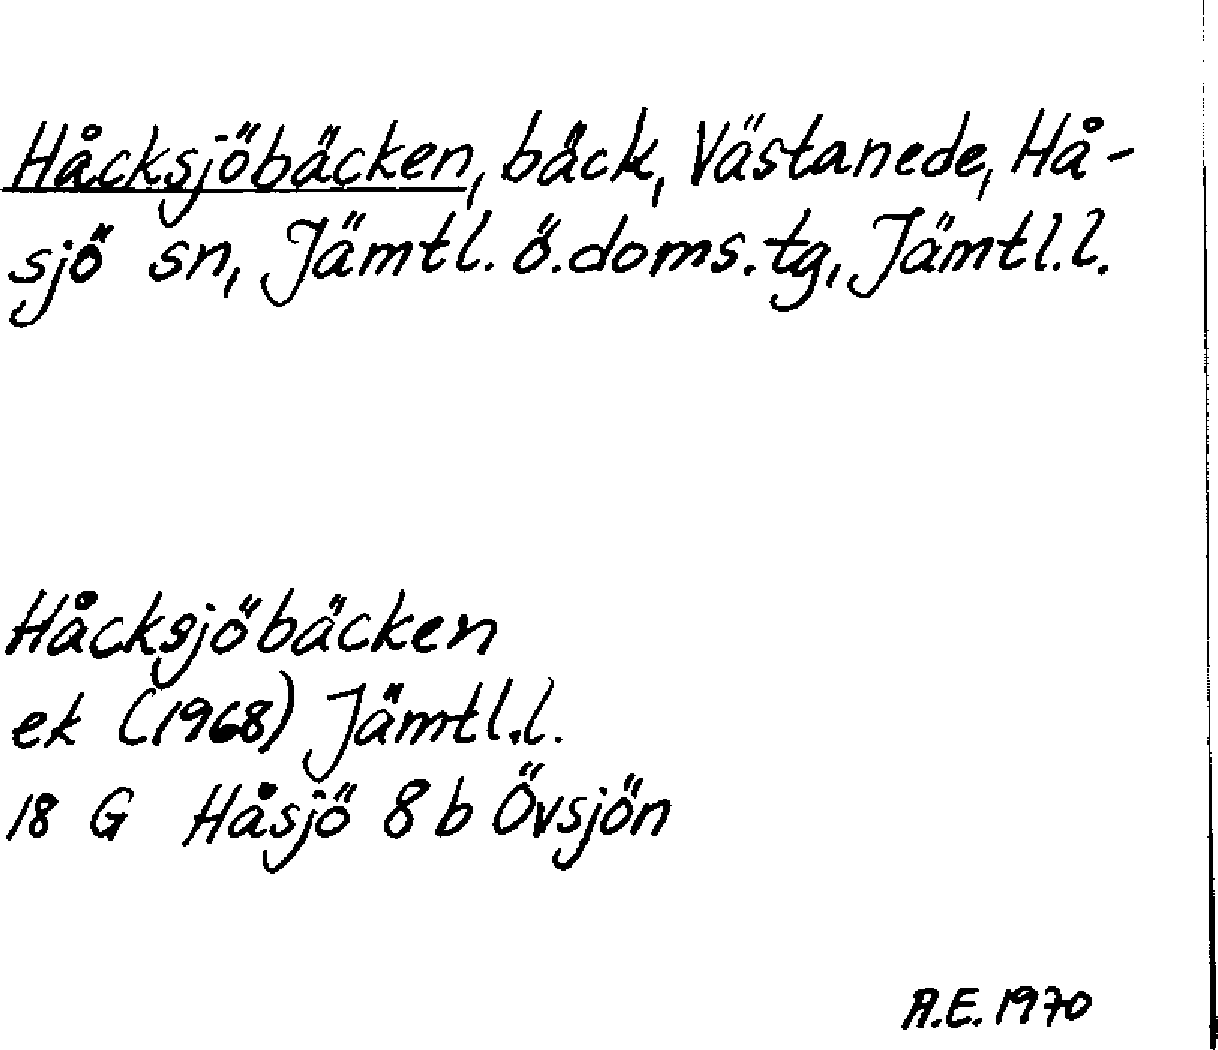 Håcksjöbäcken, bäck, Västanede, Hå-
sjö sn, Jämtl. ö. doms. tg, Jämtl.l.
Håcksjöbäcken
ek (1968) Jämtl.l.
18 G Håsjö 8 b Övsjön
A.E. 1970